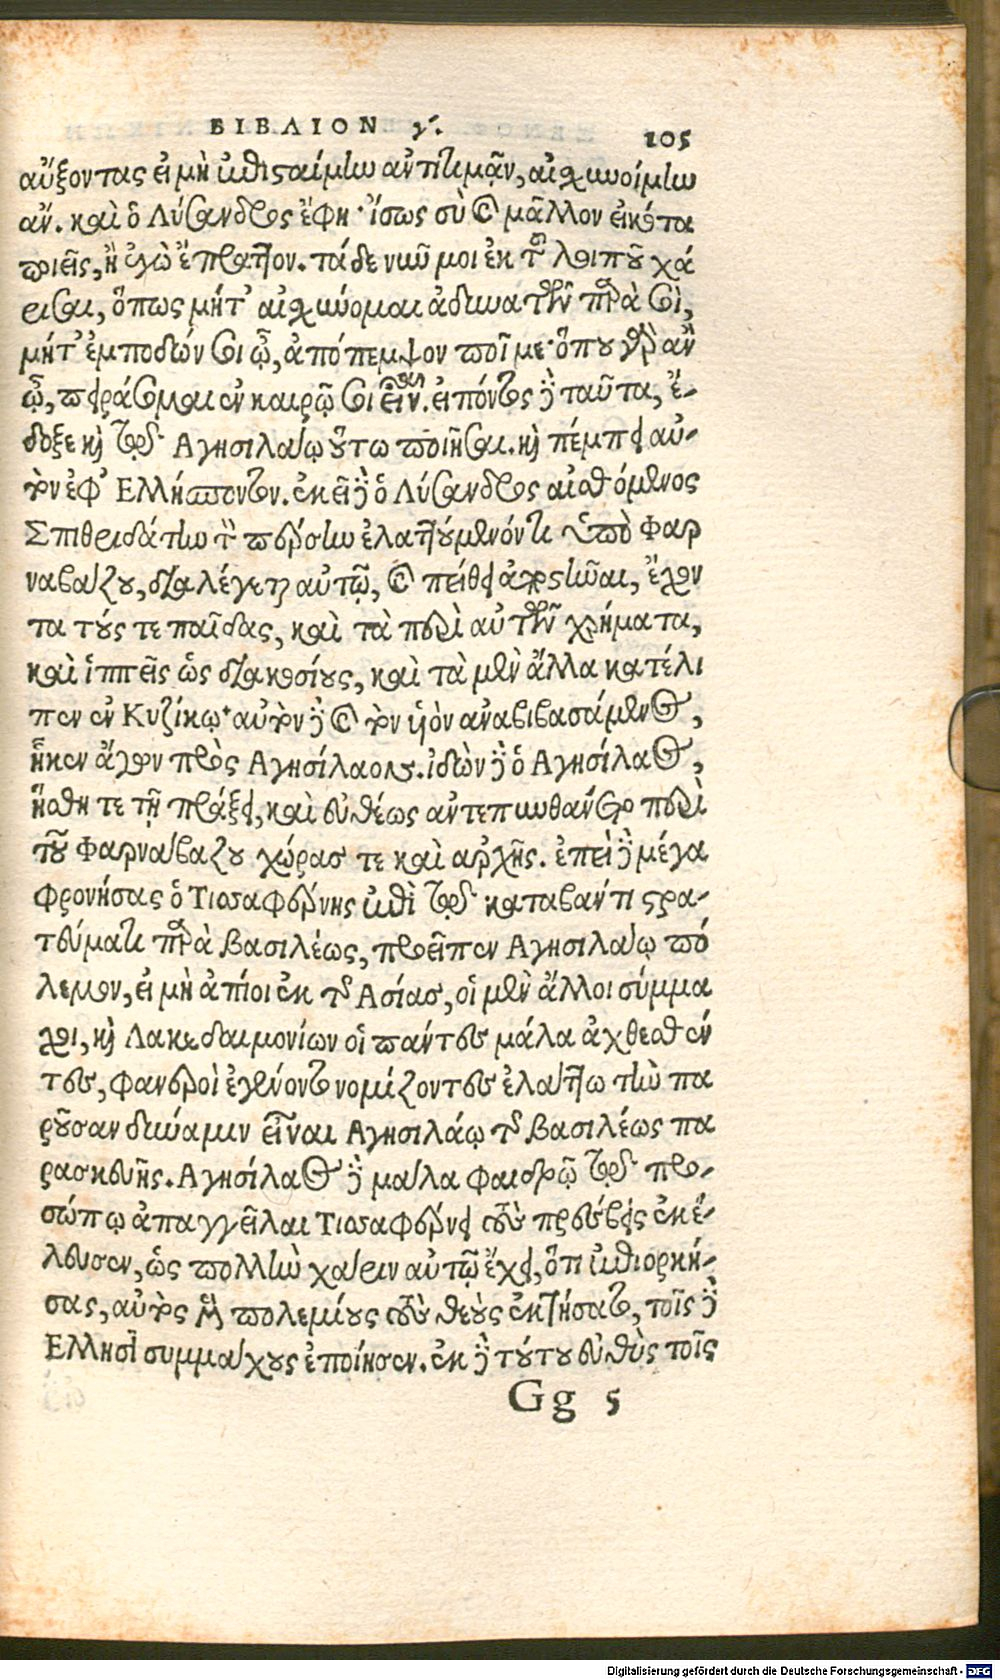 ΒΙΒΛΙΟΝ γ'. 105
αὔξοντας εἰ μὴ ἐπισταίμην ἀντιτιμᾷν, αἰσχυνοίμην
ἄν. καὶ ὁ Λύσανδρος ἔφη· ἴσως σὺ καὶ μᾶλλον εἰκότα
ποιεῖς, ἢ ἐγὼ ἔπραττον. τάδε νῦν μοι ἐκ τοῦ λοιποῦ χά
ρισαι, ὅπως μήτ' αἰσχύνομαι ἀδυνατῶν παρὰ σοὶ,
μήτ' ἐμποδών σοι ὦ, ἀπόπεμψον ποῖ με· ὅπου γὰρ ἂν
ὦ, πειράσομαι ἐν καιρῷ σοι εἶναι. εἰπόντος δὲ ταῦτα, ἔ-
δοξε καὶ τῷ Αγησιλάῳ οὕτω ποιῆσαι. καὶ πέμπει αὐ-
τὸν ἐφ' Ελλήσποντον. ἐκεῖ δὲ ὁ Λύσανδρος αἰσθόμενος
Σπιθριδάτην τὸν πέρσην ἐλαττούμενόν τι ὑπὸ Φαρ
ναβάζου, διαλέγεται αὐτῷ, καὶ πείθει ἀποστῆναι, ἔχον
τα τούς τε παῖδας, καὶ τὰ περὶ αὐτῶν χρήματα,
καὶ ἱππεῖς ὡς διακοσίους, καὶ τὰ μὲν ἄλλα κατέλι
πεν ἐν Κυζίκῳ· αὐτὸν δὲ καὶ τὸν ὑιὸν ἀναβιβασάμενος,
ἧκεν ἄγων πρὸς Αγησίλαον. ἰδὼν δὲ ὁ Αγησίλαος,
ἥσθη τε τῇ πράξει, καὶ εὐθέως ἀντεπυνθάνετο περὶ
τοῦ Φαρναβάζου χώρας τε καὶ ἀρχῆς. ἐπεὶ δὲ μέγα
φρονήσας ὁ Τισσαφέρνης ἐπὶ τῷ καταβάντι στρα-
τεύματι παρὰ βασιλέως, προεῖπεν Αγησιλάῳ πό
λεμον, εἰ μὴ ἀπίοι ἐκ τῆς Ασίας, οἱ μὲν ἄλλοι σύμμα
χοι, καὶ Λακεδαιμονίων οἱ πάντες μάλα ἀχθεσθέν
τες, φανεροὶ ἐγένοντο νομίζοντες ἐλάττω τὴν πα
ροῦσαν δύναμιν εἶναι Αγησιλάῳ τῆς βασιλέως πα
ρασκευῆς. Αγησίλαος δὲ μάλα φαιδρῷ τῷ προ-
σώπῳ ἀπαγγεῖλαι Τισσαφέρνει τοὺς πρέσβεις ἐκέ-
λευσεν, ὡς πολλὴν χάριν αὐτῷ ἔχει, ὅτι ἐπιορκή-
σας, αὐτὸς μὲν πολεμίους τοὺς θεοὺς ἐκτήσατο, τοῖς δὲ
Ελλησι συμμάχους ἐποίησεν. ἐκ δὲ τούτου εὐθὺς τοῖς
Gg 5
Digitalisierung gefördert durch die Deutsche Forschungsgemeinschaft - DFG